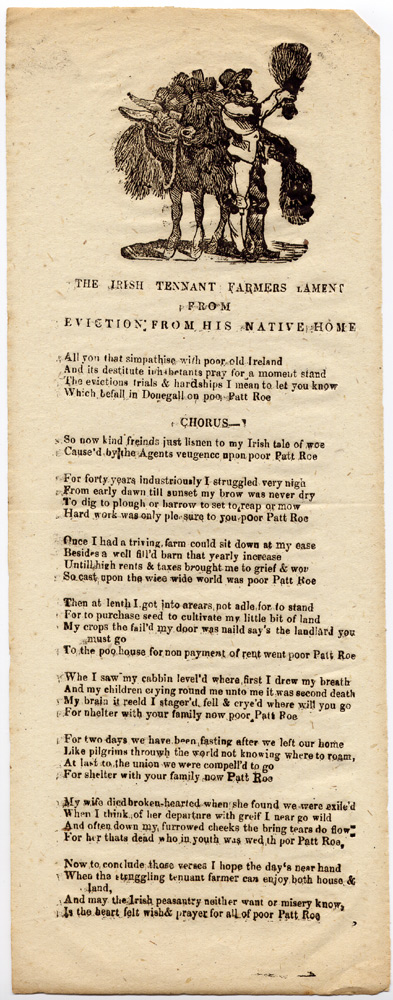 THE IRISH TENNANT FARMERS LAMENT
FROM
EVICTION FROM HIS NATIVE HOME
All you that simpathise with poor old Ireland
And its destitute inhabetants pray for a moment stand
The evictions trials & hardships I mean to let you know
Which befall in Donegall on poo, Patt Roe
CHORUS—
So now kind freinds just lisnen to my Irish tale of woe
Cause'd by the Agents veugence upon poor Patt Roe
For forty years industriously I struggled very nigh
From early dawn till sunset my brow was never dry
To dig to plough or harrow to set to reap or mow
Hard work was only ple sure to you poor Patt Roe
Once I had a triving farm could sit down at my ease
Besides a well fill'd barn that yearly increase
Untill high rents & taxes brought me to grief & wo
So cast upon the wide wide world was poor Patt Roe
Then at lenth I got into arears not adle for to stand
For to purchase seed to cultivate my little bit of land
My crops the fail'd my door was naild say's the landlard you
must go
To the poo house for non payment of rent went poor Patt Roe
Whe I saw my cabbin level'd where first I drew my breath
And my children crying round me unto me it was second death
My brain it reeld I stager'd fell & crye'd where will you go
For nhelter with your family now poor Patt Roe
For two days we have been fasting after we left our home
Like pilgrims through the world not knowing where to roam,
At last to the union we were compell'd to go
For shelter with your family now Patt Roe
My wife died broken-hearted when she found we were exile'd
When I think of her departure with greif I near go wild
And often down my furrowed cheeks the bring tears do flow
For her thats dead who in youth was wed th por Patt Roe,
Now to conclude those verses I hope the day's near hand
When tha struggling tenuant farmer can enjoy both house &
land,
And may the Irish peasantry neither want or misery know,
Is the heart felt wish & prayer for all of poor Patt Roe